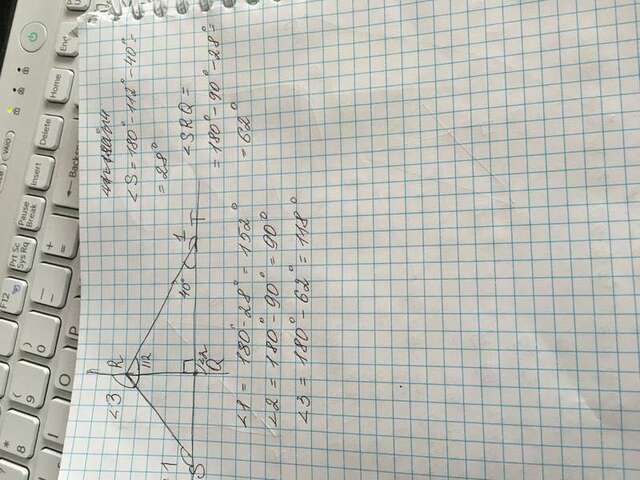 ∠S = 180° - 112° - 40° =
= 28°
∠SRQ =
= 180° - 90° - 28° =
= 62°
∠3
R
112
40°
1
T
∠2
Q
1
S
∠1 = 180° - 28° = 152°
∠2 = 180° - 90° = 90°
∠3 = 180° - 62° = 118°
End
Home
Delete
Insert
Pause
Break
Prt Sc
Sys Rq
F12
Backspace
+
=
-
P
)
0
(
9
*
8